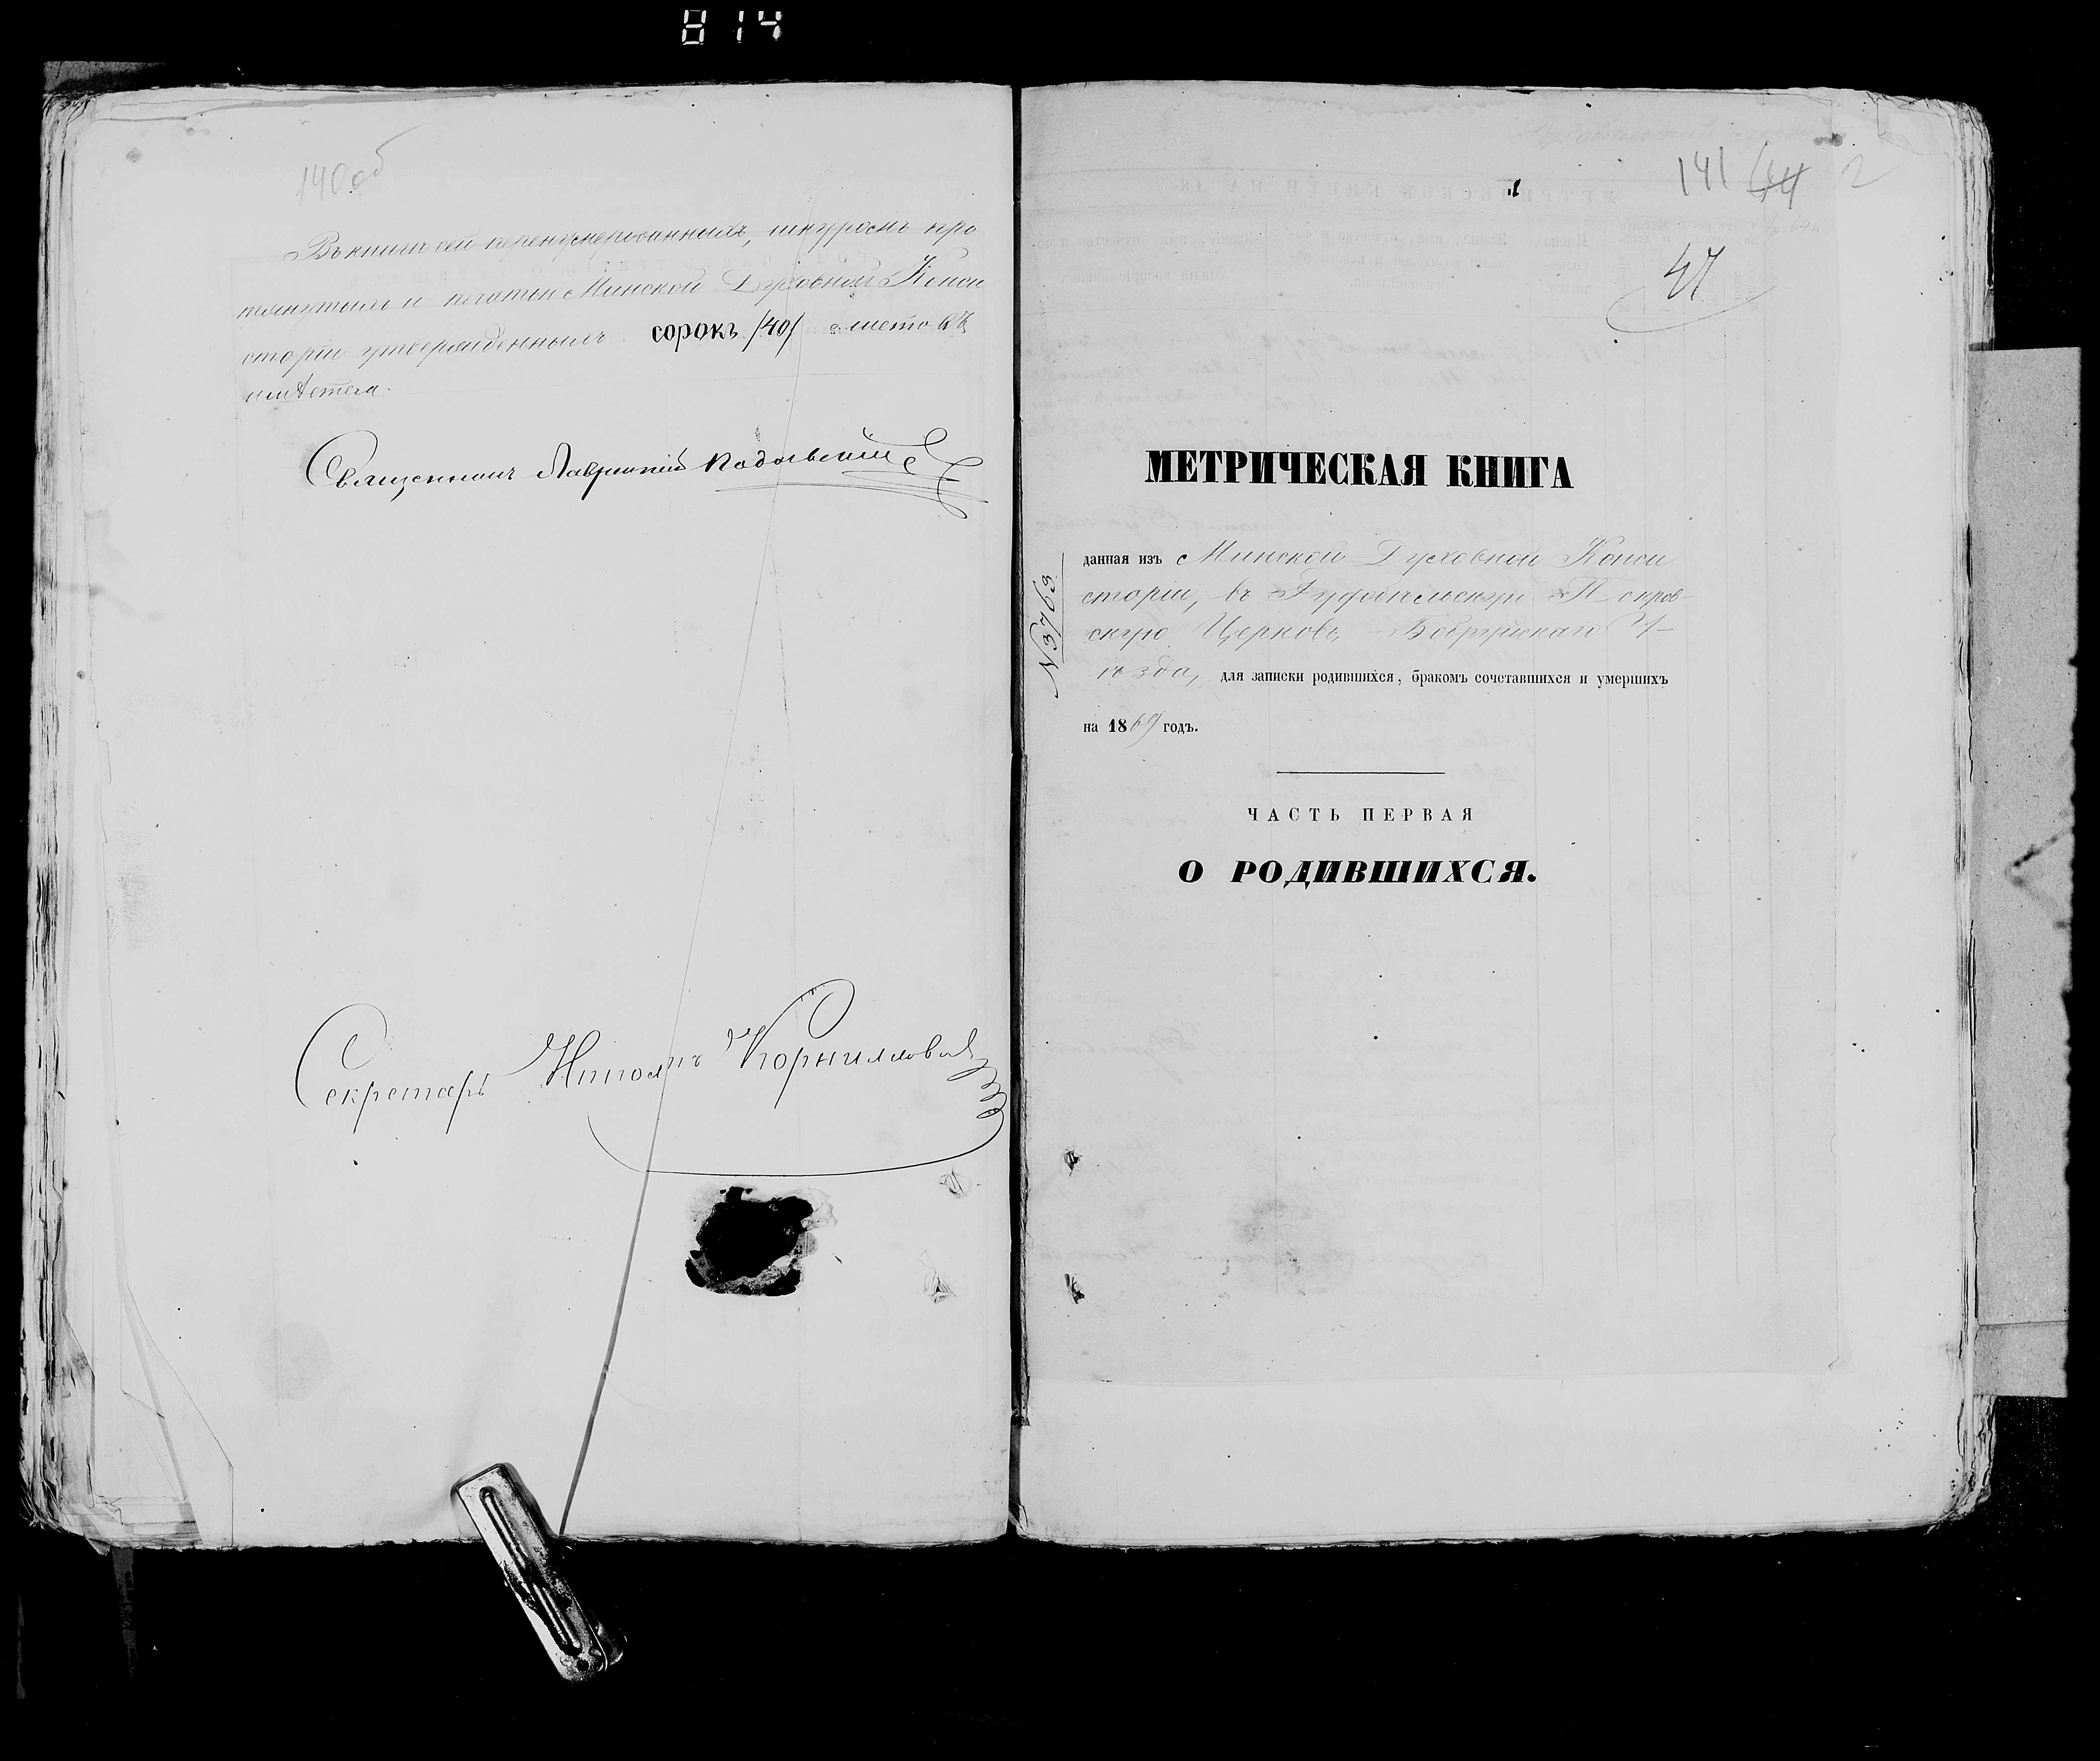 814
140об
Въ книгѣ сей перенумерованныхъ, шнуромъ про
тянутыхъ и печатью Минской Духовной Конси
сторіи утвержденныхъ сорокъ /40/ листовъ
имѣется.
Священникъ
Секретарь Корниловичъ
141 144 2
1
47
МЕТРИЧЕСКАЯ КНИГА
данная изъ Минской Духовной Конси
сторіи, въ Рудобѣльскую Покров-
скую Церковь, Бобруйскаго У-
ѣзда, для записки родившихся, бракомъ сочетавшихся и умершихъ
на 1869 годъ.
№ 3763
ЧАСТЬ ПЕРВАЯ
О РОДИВШИХСЯ.